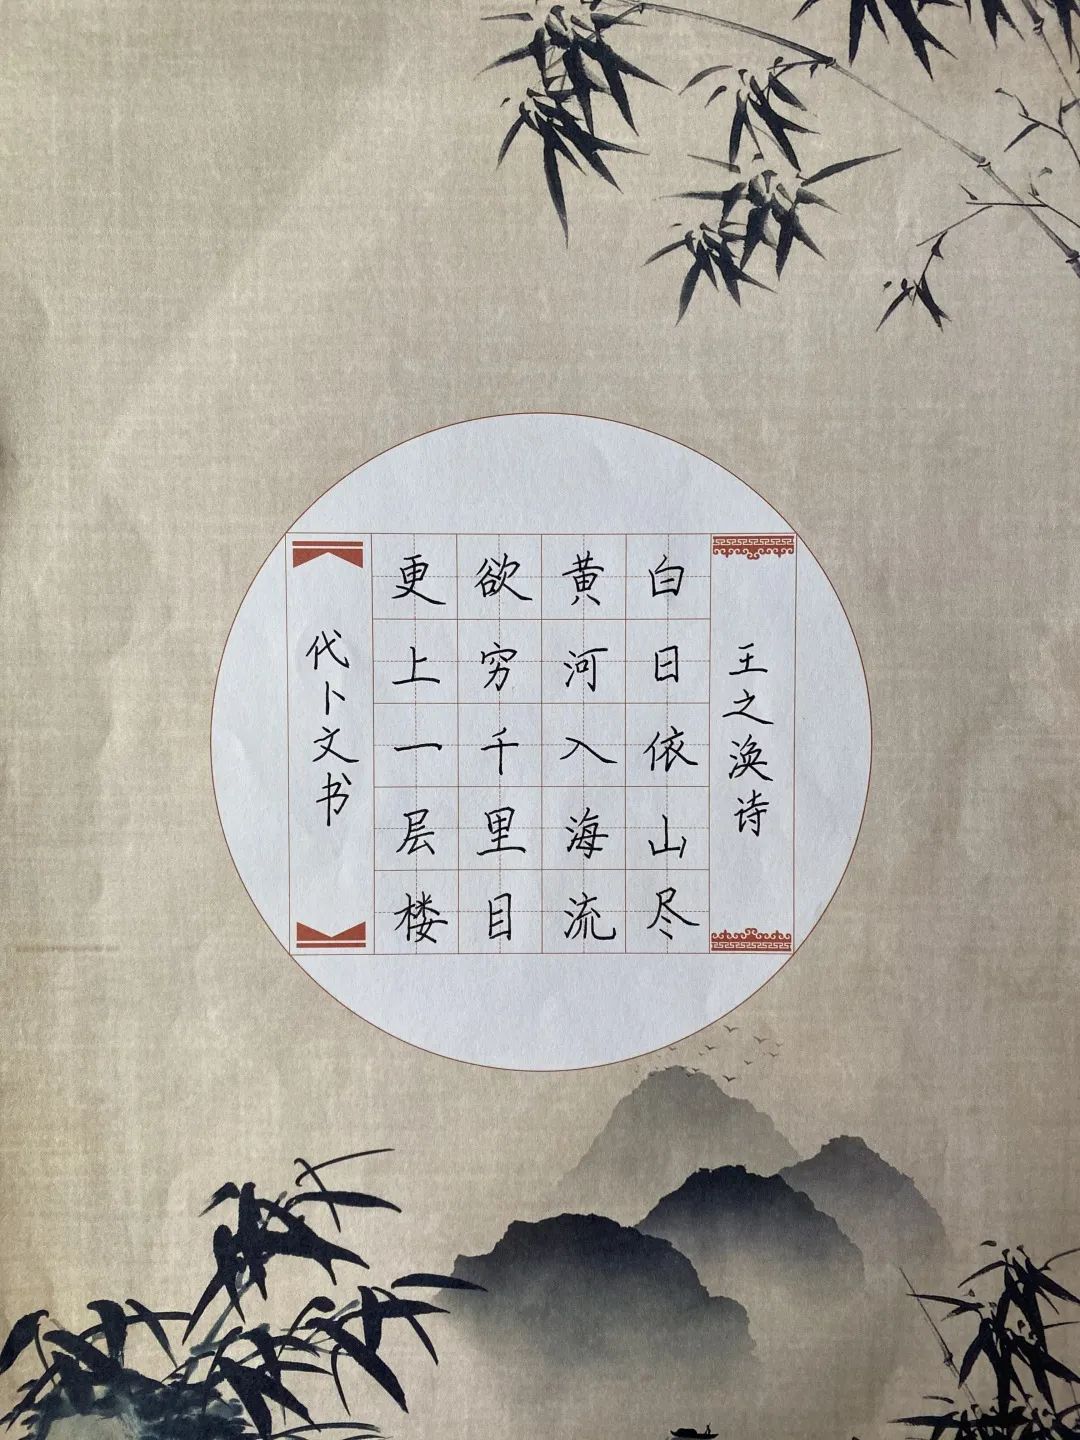 王之涣诗
白日依山尽
黄河入海流
欲穷千里目
更上一层楼
代卜文书